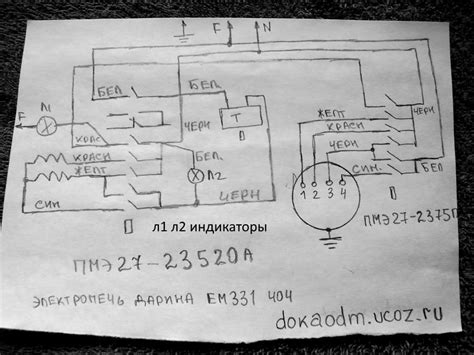 F N
БЕЛ.
Л1
F
ЧЕРН
Т
КРАСН
КРАСН
ЖЕЛТ
БЕЛ.
Л2
СИН
ЧЕРН
ЧЕРН
ЖЕЛТ
КРАСН
ЧЕРН
СИН.
БЕЛ
1 2 3 4
л1 л2 индикаторы
ПМЭ27-2375П
ПМЭ27-23520А
ЭЛЕКТРОПЕЧЬ ДАРИНА ЕМ331 404
dokaodm.ucoz.ru